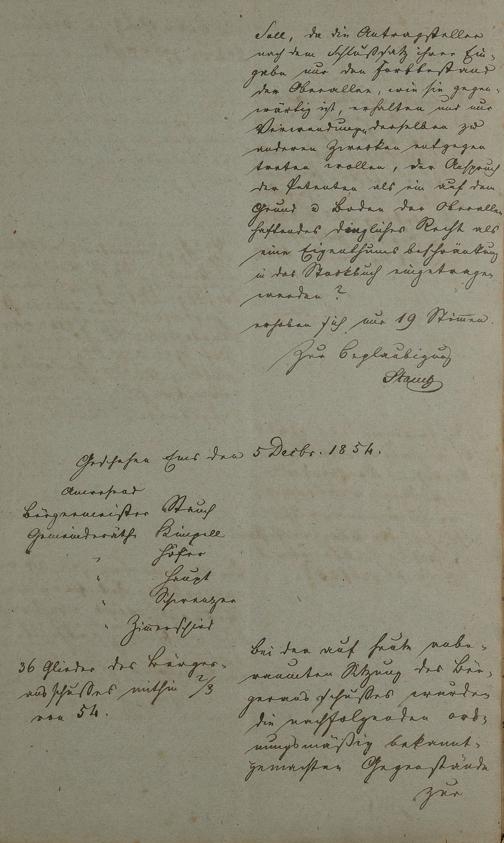 Soll, da die Antragsteller
nach dem Schlußsatz ihrer Ein-
gabe nur den Fortbestand
der Oberallee, wie sie gegen-
wärtig ist, erhalten und nur
Verwendung derselben zu
anderen Zwecken entgegen
treten wollen, der Anspruch
der Petenten als ein auf dem
Grund u Boden der Oberallee
haftendes dingliches Recht als
eine Eigenthumsbeschränkung
in das Stockbuch eingetragen
werden?
erhoben sich nur 19 Stimmen.
Zur Beglaubigung
Stauch
Geschehen Ems den 5 Decbr. 1854.
Anwesend
Bürgermeister Stauch
Gemeinderäthe Kimpell
" Höfer
" Haupt
" Schwenzer
" Zimmerschied
36 Glieder des Bürger-
ausschußes mithin 2/3
von 54.
Bei der auf heute anbe-
raumten Sitzung des Bür-
gerausschußes wurden
die nachfolgenden ord-
nungsmäßig bekannt-
gemachten Gegenstände
zur